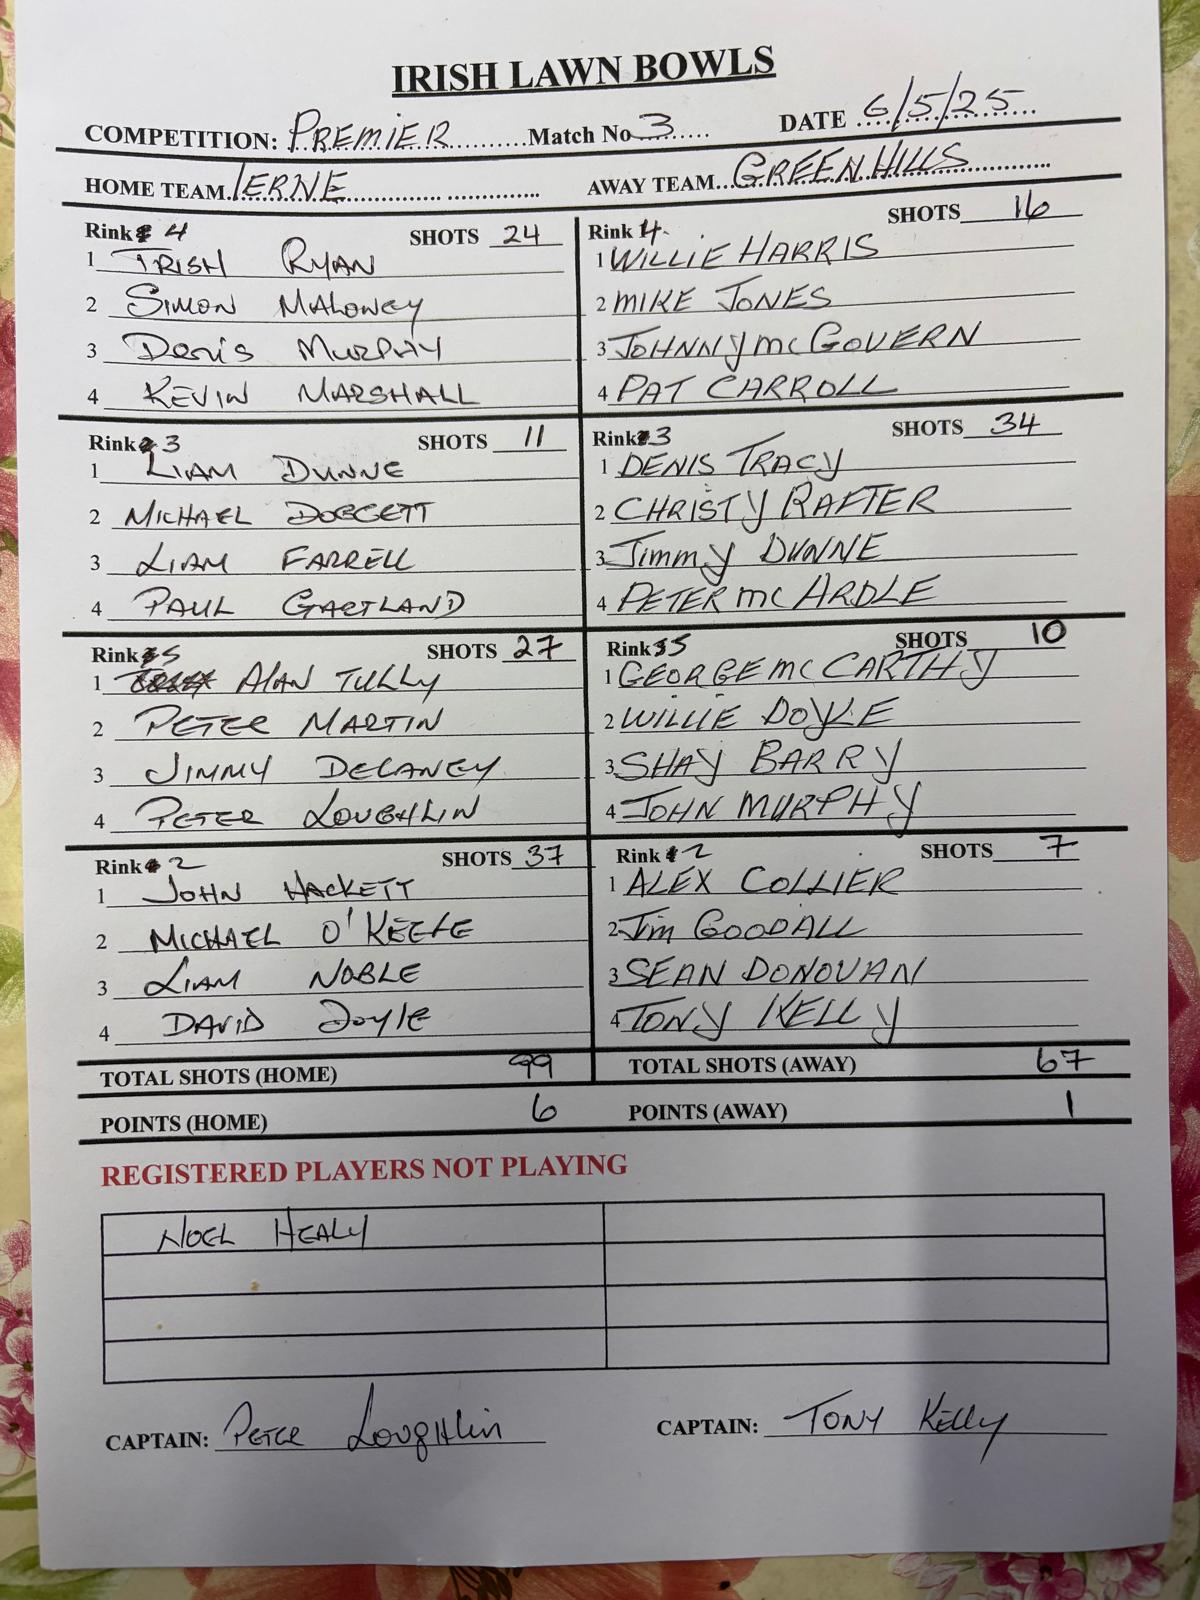 IRISH LAWN BOWLS
COMPETITION: PREMIER Match No 3 DATE 6/5/25
HOME TEAM IERNE AWAY TEAM GREENHILLS
Rink 4 SHOTS 24
1 TRISH RYAN
2 SIMON MALONEY
3 DENIS MURPHY
4 KEVIN MARSHALL
Rink 4. SHOTS 16
1 WILLIE HARRIS
2 MIKE JONES
3 JOHNNY MC GOVERN
4 PAT CARROLL
Rink 3 SHOTS 11
1 LIAM DUNNE
2 MICHAEL DOGGETT
3 LIAM FARRELL
4 PAUL GARTLAND
Rink 3 SHOTS 34
1 DENIS TRACY
2 CHRISTY RAFTER
3 Jimmy DUNNE
4 PETER MC ARDLE
Rink 5 SHOTS 27
1 ALAN TULLY
2 PETER MARTIN
3 JIMMY DELANEY
4 PETER LOUGHLIN
Rink 5 SHOTS 10
1 GEORGE MC CARTHY
2 WILLIE DOYLE
3 SHAY BARRY
4 JOHN MURPHY
Rink 2 SHOTS 37
1 JOHN HACKETT
2 MICHAEL O'KEEFE
3 LIAM NOBLE
4 DAVID Doyle
Rink 2 SHOTS 7
1 ALEX COLLIER
2 Jim GOODALL
3 SEAN DONOVAN
4 TONY KELLY
TOTAL SHOTS (HOME) 99 TOTAL SHOTS (AWAY) 67
POINTS (HOME) 6 POINTS (AWAY) 1
REGISTERED PLAYERS NOT PLAYING
NOEL HEALY
CAPTAIN: PETER Loughlin CAPTAIN: TONY Kelly